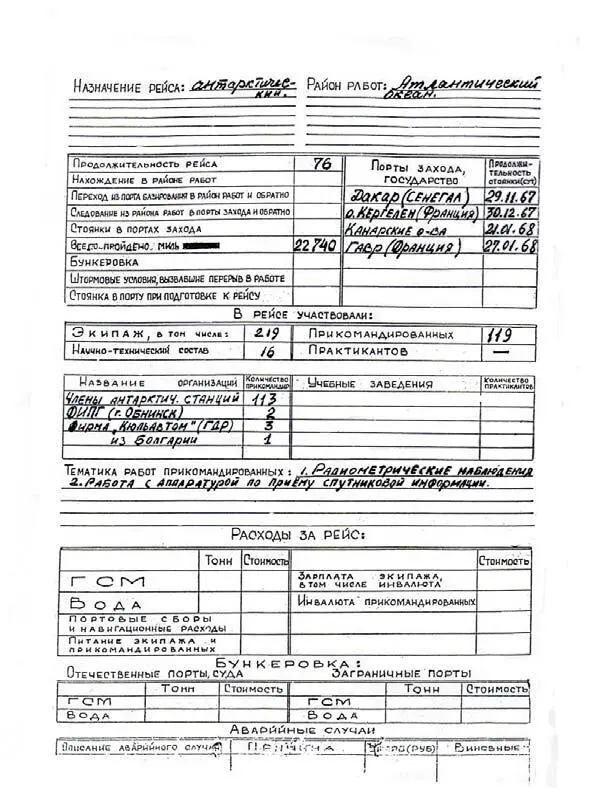 Назначение рейса: антарктичес- Район работ: Атлантический
кий. океан.
Продолжительность рейса 76 Порты захода, Продолжи-
Нахождение в районе работ государство тельность
Переход из порта базирования в район работ и обратно Дакар (Сенегал) 29.11.67
Следование из района работ в порты захода и обратно о. Кергелен (Франция) 30.12.67
Стоянки в портах захода Канарские о-ва 21.01.68
Всего пройдено миль 22740 Гавр (Франция) 27.01.68
Бункеровка
Штормовые условия, вызвавшие перерыв в работе
Стоянка в порту при подготовке к рейсу
В рейсе участвовали:
Экипаж, в том числе: 219 Прикомандированных 119
Научно-технический состав 16 Практикантов —
Название организаций Количество прикомандир. Учебные заведения Количество практикантов
Члены антарктич. станций 113
ФИПГ (г. Обнинск) 2
Фирма "Кюльавтом" (ГДР) 3
из Болгарии 1
Тематика работ прикомандированных: 1. Радиометрические наблюдения
2. Работа с аппаратурой по приёму спутниковой информации.
Расходы за рейс:
Тонн Стоимость Стоимость
ГСМ Зарплата экипажа,
в том числе инвалюта
Вода Инвалюта прикомандированных
Портовые сборы
и навигационные расходы
Питание экипажа и
прикомандированных
Бункеровка:
Отечественные порты, суда Заграничные порты
Тонн Стоимость Тонн Стоимость
ГСМ ГСМ
Вода Вода
Аварийные случаи
Описание аварийного случая Причина (руб) Виновные